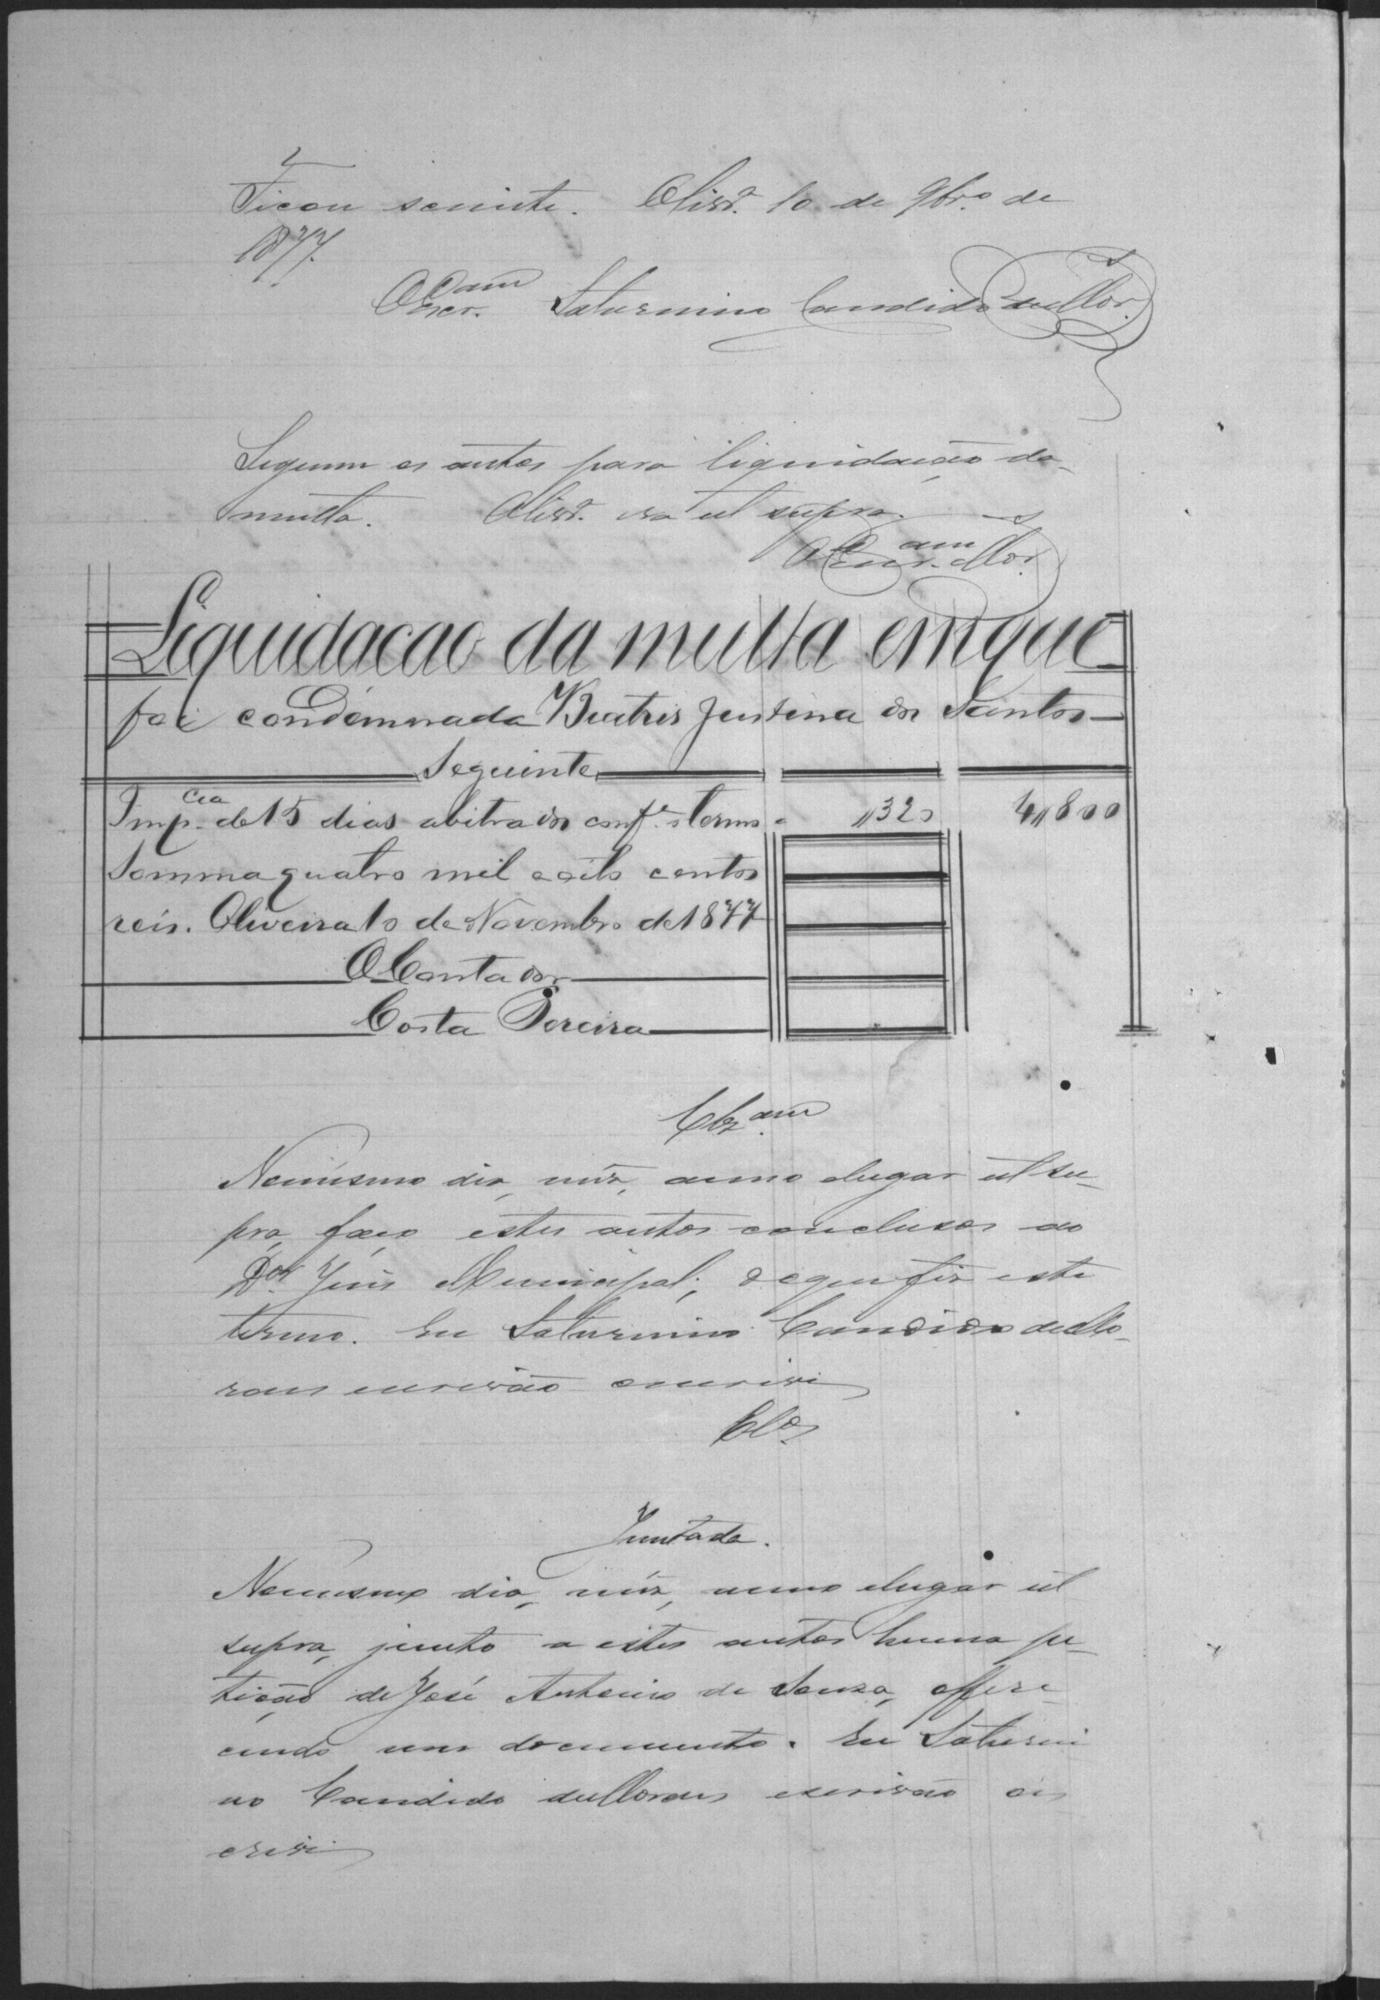 Ficou sciente. Olivr.ª 10 de 9br.º de
1877.
O Escr.am Saturnino Candido de Mor.s
Seguem os autos para liquidação da
multa. Olivr.ª era ut supra.
O Escr.am Mor.s
Liquidacao da multa em que
foi condemnada Beatris Justina dos Santos
Seguinte
Imp.cia de 15 dias abitrados conf.e termo 320 4,800
Somma quatro mil e oito centos
reis. Oliveira 10 de Novembro de 1877
O Contador
Costa Pereira
Clz.am
No mesmo dia, mez, anno e lugar ut su-
pra, faço estes autos conclusos ao
D.or Juis Municipal; do que fiz este
termo. Eu Saturnino Candido de Mo-
raes escrivão o escrivi
Cl.os
Juntada.
No mesmo dia, mez, anno e lugar ut
supra, junto a estes autos huma pe-
tição de José Antonio de Souza, offere-
cendo um documento. Eu Saturni
no Candido de Moraes escrivão o es
crivi